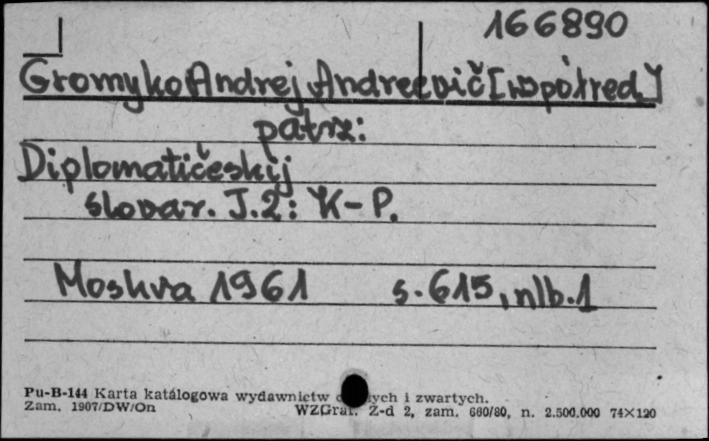 166890
Gromyko Andrej Andreevič [współred]
patrz:
Diplomatičeskij
slovar. T.2: K-P.
Moskva 1961 s. 615, nlb. 1
Pu-B-144 Karta katalogowa wydawnictw ych i zwartych.
Zam. 1907/DW/On WZGraf. Z-d 2, zam. 660/80, n. 2.500.000 74×120